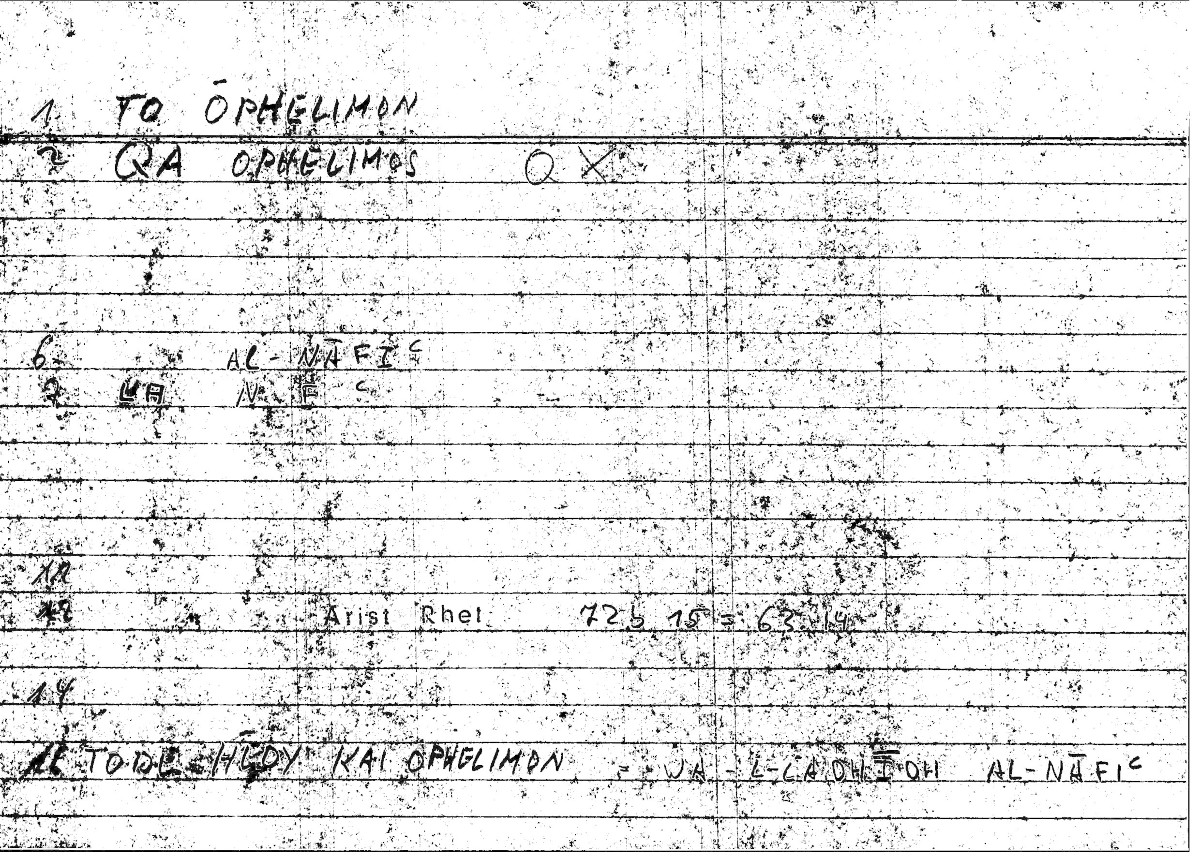 1 TO ŌPHELIMON
2 QA OPHELIMOS Q X
6 AL-NĀFIᶜ
7 N F ᶜ
Arist Rhet. 72b 15 = 63 14
14
TO DE HĒDY KAI OPHELIMON = WA-L-LADHĪDH AL-NĀFIᶜ